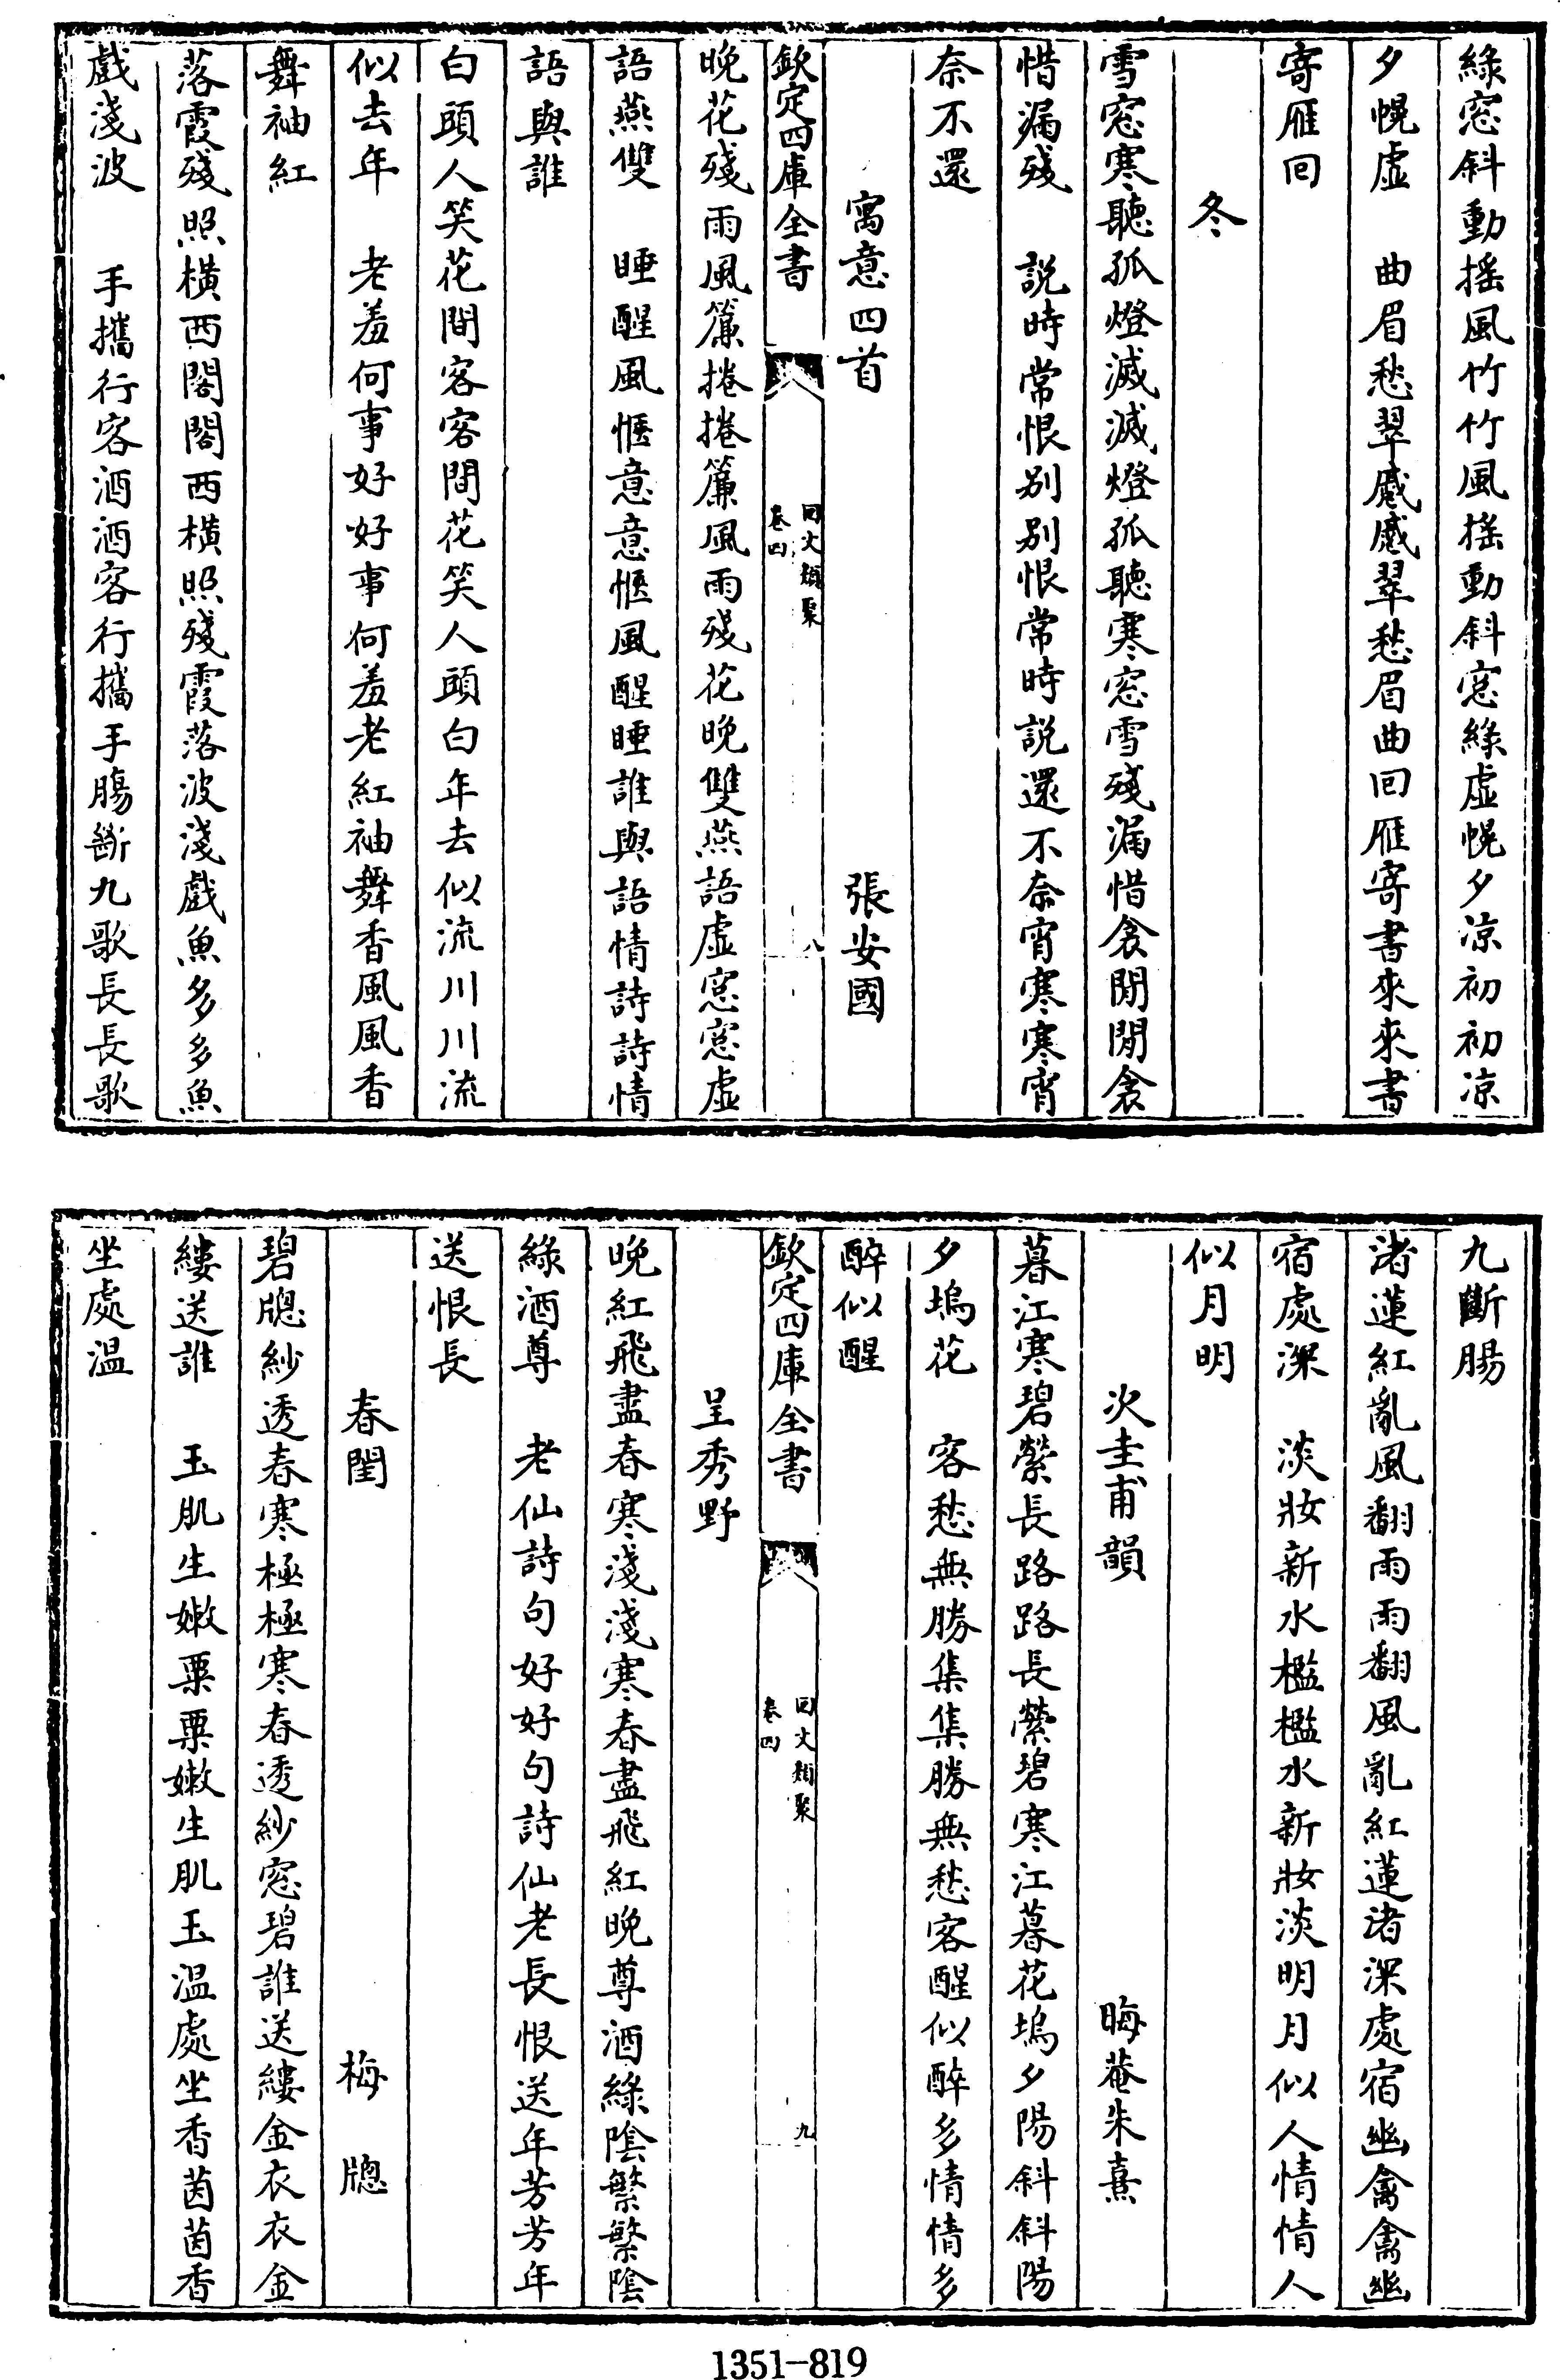 綠窓斜動揺風竹竹風揺動斜窓綠虚幌夕凉初初凉
夕幌虚　曲眉愁翠蹙蹙翠愁眉曲回雁寄書來來書
寄雁回
冬
雪窓寒聽孤燈滅滅燈孤聽寒窓雪殘漏惜衾閒閒衾
惜漏殘　説時常恨别别恨常時説還不奈宵寒寒宵
奈不還
寓意四首　張安國
欽定四庫全書
回文類聚
卷四
八
晚花殘雨風簾捲捲簾風雨殘花晚雙燕語虚窓窓虚
語燕雙　睡醒風愜意意愜風醒睡誰與語情詩詩情
語與誰
白頭人笑花間客客間花笑人頭白年去似流川川流
似去年　老羞何事好好事何羞老紅袖舞香風風香
舞袖紅
落霞殘照横西閣閣西横照殘霞落波淺戲魚多多魚
戲淺波　手攜行客酒酒客行攜手腸斷九歌長長歌
九斷腸
渚蓮紅亂風翻雨雨翻風亂紅蓮渚深處宿幽禽禽幽
宿處深　淡妝新水檻檻水新妝淡明月似人情情人
似月明
次圭甫韻　晦菴朱熹
暮江寒碧縈長路路長縈碧寒江暮花塢夕陽斜斜陽
夕塢花　客愁無勝集集勝無愁客醒似醉多情情多
醉似醒
欽定四庫全書
回文類聚
卷四
九
呈秀野
晚紅飛盡春寒淺淺寒春盡飛紅晚尊酒綠陰繁繁陰
綠酒尊　老仙詩句好好句詩仙老長恨送年芳芳年
送恨長
春閨　梅牕
碧牕紗透春寒極極寒春透紗窓碧誰送縷金衣衣金
縷送誰　玉肌生嫩粟粟嫩生肌玉温處坐香茵茵香
坐處温
1351-819